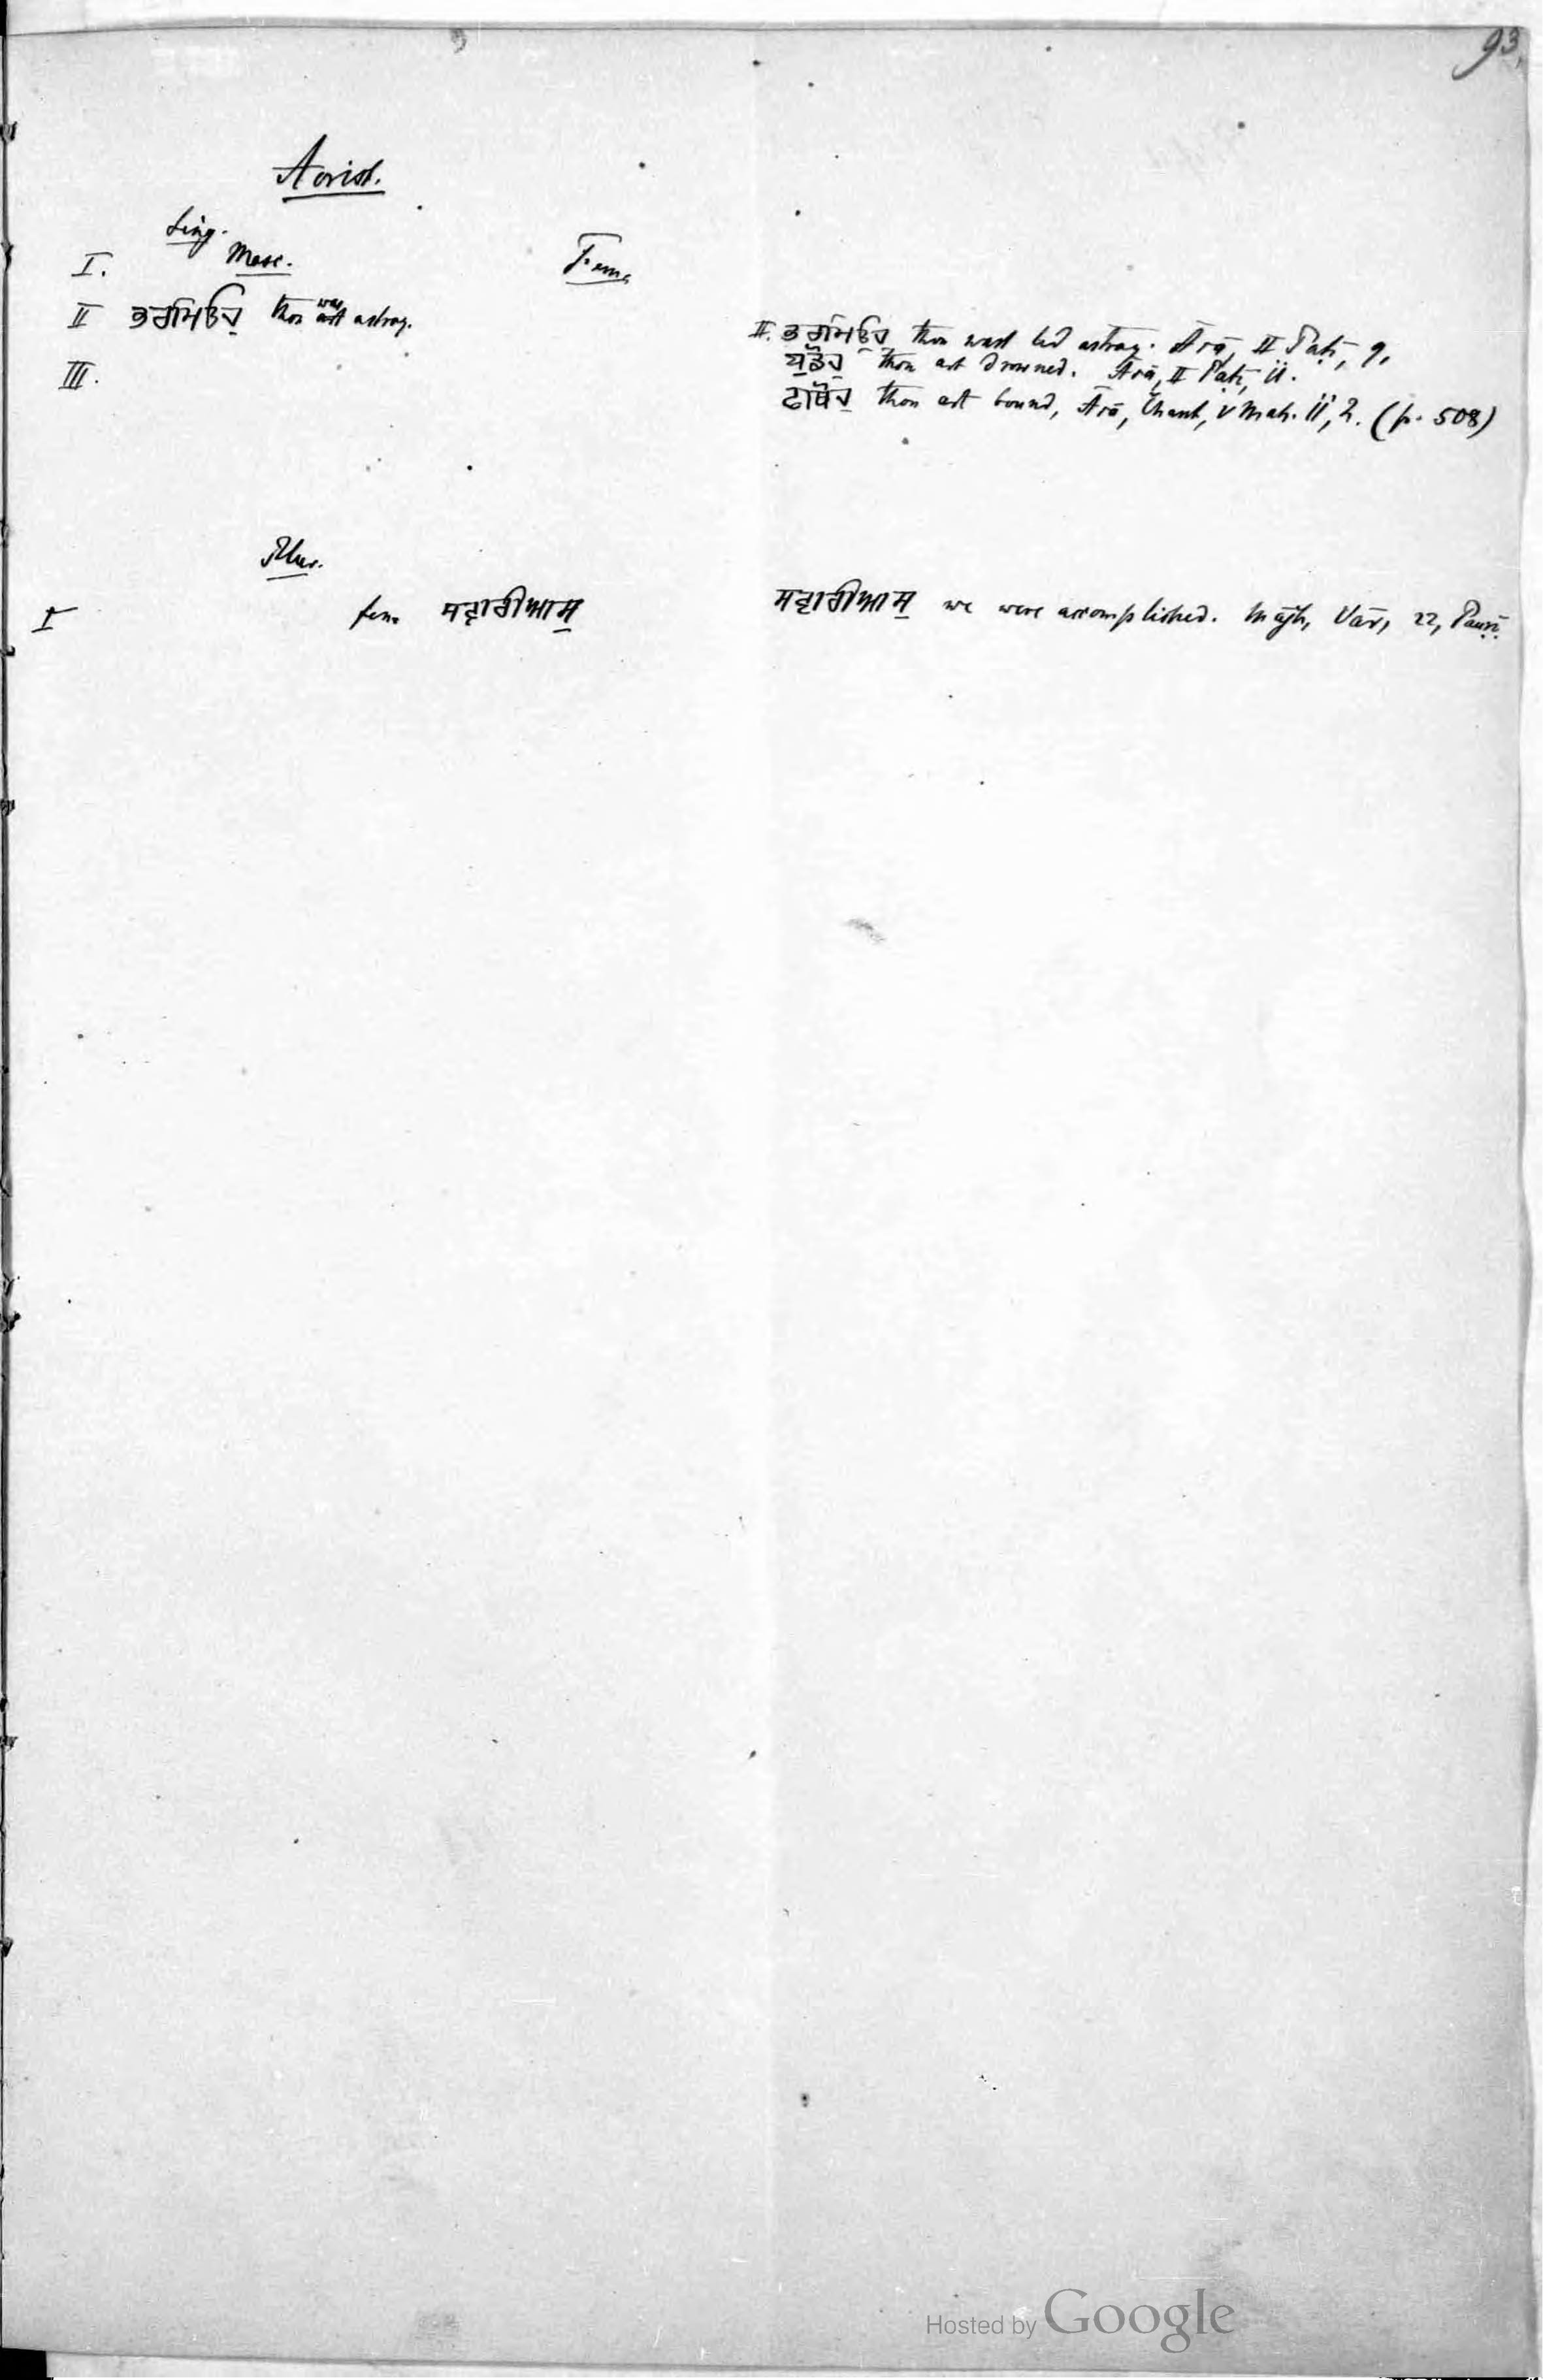 93.
Aorist.
Sing.
I. Masc. Fem.
II ਭਰਮਿਓਹੁ thou wast art astray.
II. ਭਰਮਿਓਹੁ thou wast led astray. Āsā, II Paṭī, 9.
thou art drowned. Āsā, II Paṭī, 11.
III.
ਫਾਥੋਹੁ thou art bound, Āsā, Chant, V Mah. 11, 2. (p. 508)
Plur.
I fem. ਸਵਾਰੀਆਸੁ
ਸਵਾਰੀਆਸੁ we were accomplished. Mājh, Vār, 22, Pauṛī.
Hosted by Google